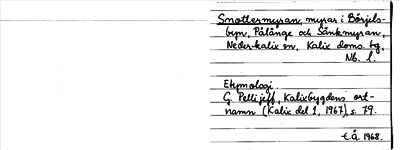 Snottermyran, myrar i Börjels-
byn, Pålänge och Sånkmyran,
Nederkalix sn, Kalix doms. tg,
Nb. l.
Etymologi
G. Pellijeff, Kalixbygdens ort-
namn (Kalix del 1, 1967) s. 79.
t.å. 1968.